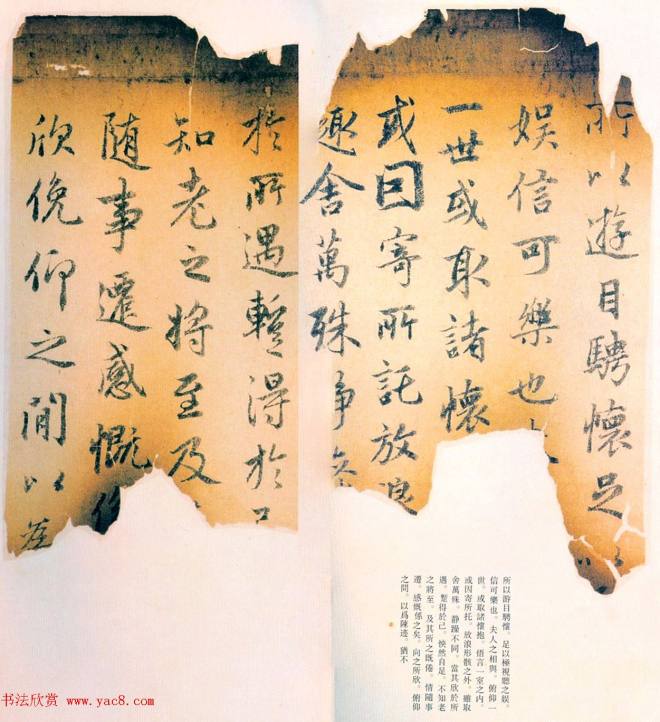 所以遊目騁懷足以
娛信可樂也夫
一世或取諸懷
或因寄所託放浪
趣舍萬殊静
於所遇蹔得於己
知老之將至及
隨事遷感慨係
欣俛仰之間以為
所以游目騁懷。足以極視聽之娛。
信可樂也。夫人之相與。俯仰一
世。或取諸懷抱。悟言一室之内。
或因寄所托。放浪形骸之外。雖取
舍萬殊。静躁不同。當其欣於所
遇。蹔得於己。怏然自足。不知老
之將至。及其所之既倦。情隨事
遷。感慨係之矣。向之所欣。俯仰
之間。以爲陳迹。猶不
书法欣赏 www.yac8.com